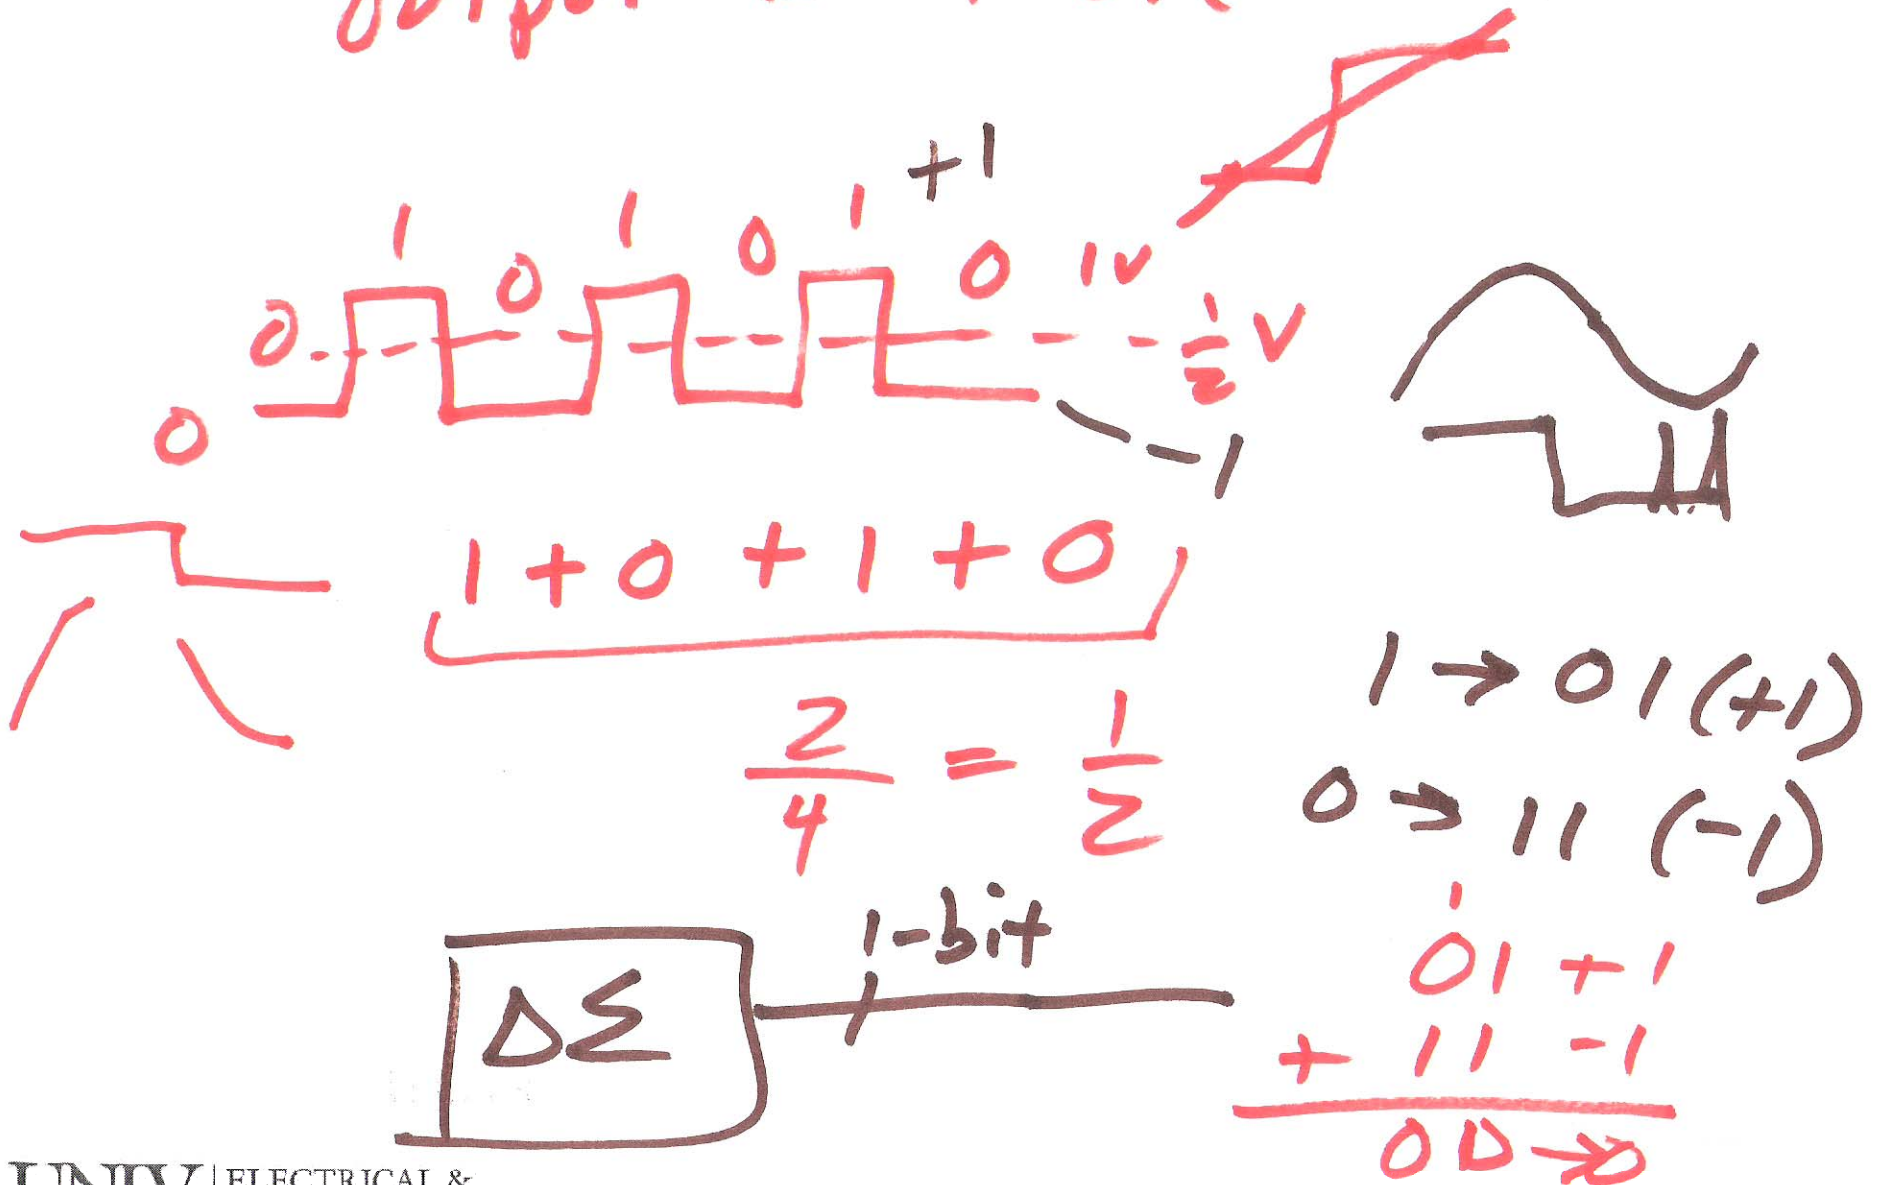 +1
1 1 1
0 0 0 0 1V
1/2 V
0
-1
1 + 0 + 1 + 0
2/4 = 1/2
1 → 01 (+1)
0 → 11 (-1)
1-bit
ΔΣ
1
01 +1
+ 11 -1
00 → 0
UNLV | ELECTRICAL &